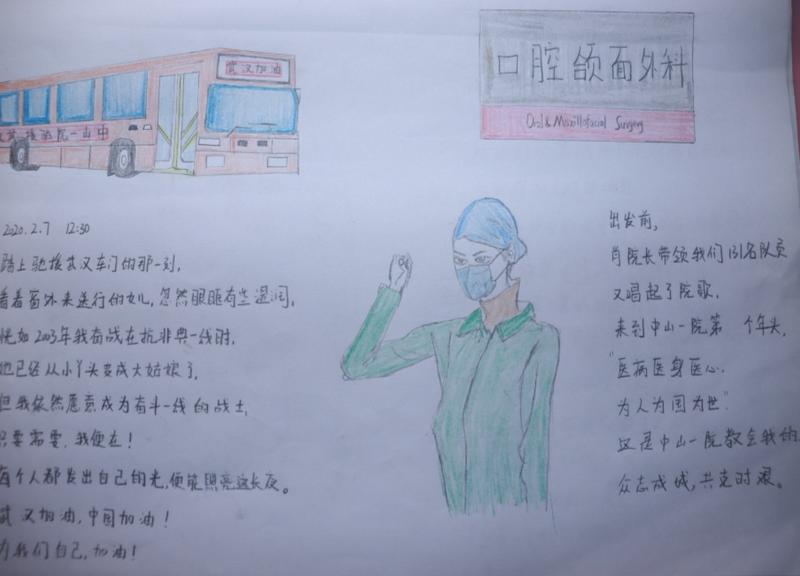 武汉加油
援驰院一山中
口腔颌面外科
Oral & Maxillofacial Surgery
2020.2.7 12:30
踏上驰援武汉车门的那一刻,
看着窗外来送行的女儿,忽然眼眶有些湿润。
恍如2003年我奋战在抗非典一线时,
她已经从小丫头变成大姑娘了,
但我依然愿意成为奋斗一线的战士,
只要需要,我便在!
每个人都发出自己的光,便能照亮这长夜。
武汉加油,中国加油!
为我们自己,加油!
出发前,
肖院长带领我们131名队员
又唱起了院歌,
来到中山一院第 个年头,
"医病医身医心,
为人为国为世"
这是中山一院教会我的
众志成城,共克时艰。